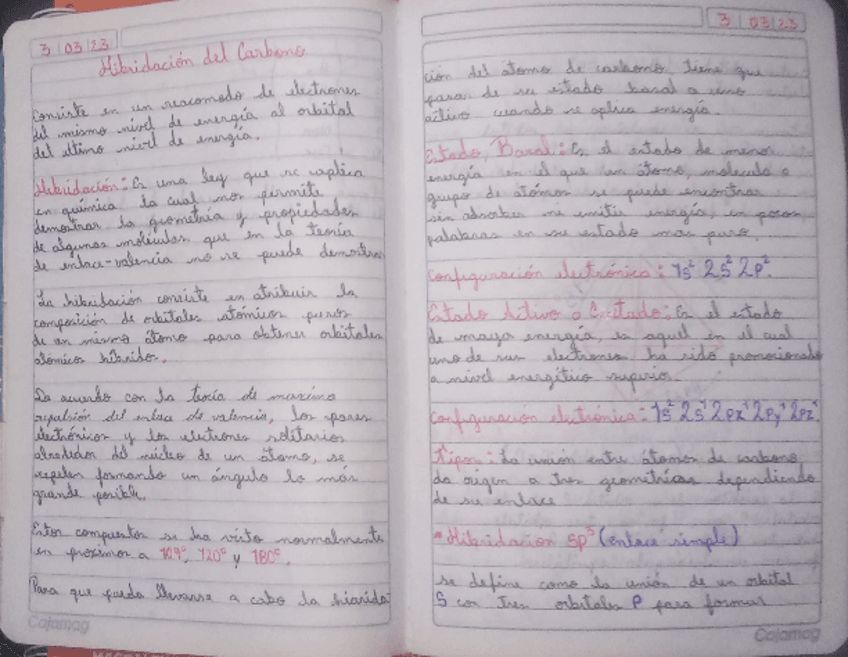 3 03 23
Hibridación del Carbono
Consiste en un reacomodo de electrones
del mismo nivel de energía al orbital
del último nivel de energía.
Hibridación: Es una ley que se aplica
en química la cual nos permite
demostrar la geometría y propiedades
de algunas moléculas que en la teoría
de enlace-valencia no se puede demostrar
La hibridación consiste en atribuir la
composición de orbitales atómicos puros
de un mismo átomo para obtener orbitales
atómicos híbridos.
De acuerdo con la teoría de maxima
repulsión del enlace de valencia, los pares
electrónicos y los electrones solitarios
alrededor del núcleo de un átomo, se
repelen formando un ángulo lo más
grande posible.
Estos compuestos se ha visto normalmente
en proximos a 109°, 120° y 180°.
Para que pueda llevarse a cabo la hibrida
Cajamag
3 03 23
ción del átomo de carbono tiene que
pasar de su estado basal a uno
activo cuando se aplica energía.
Estado Basal: Es el estado de menor
energía en el que un átomo, molecula o
grupo de átomos se puede encontrar
sin absorber ni emitir energía, en pocas
palabras en su estado mas puro.
Configuración electrónica: 1s² 2s² 2p².
Estado Activo o Exitado: Es el estado
de maya energía, es aquel en el cual
uno de sus electrones ha sido promocionado
a nivel energético superior.
Configuración electrónica: 1s² 2s¹ 2px¹ 2py¹ 2pz¹
Tipos: La unión entre átomos de carbono
da origen a tres geometrías dependiendo
de su enlace
Hibridacion sp³ (enlace simple)
se define como la unión de un orbital
S con tres orbitales P para formar
Cajamag